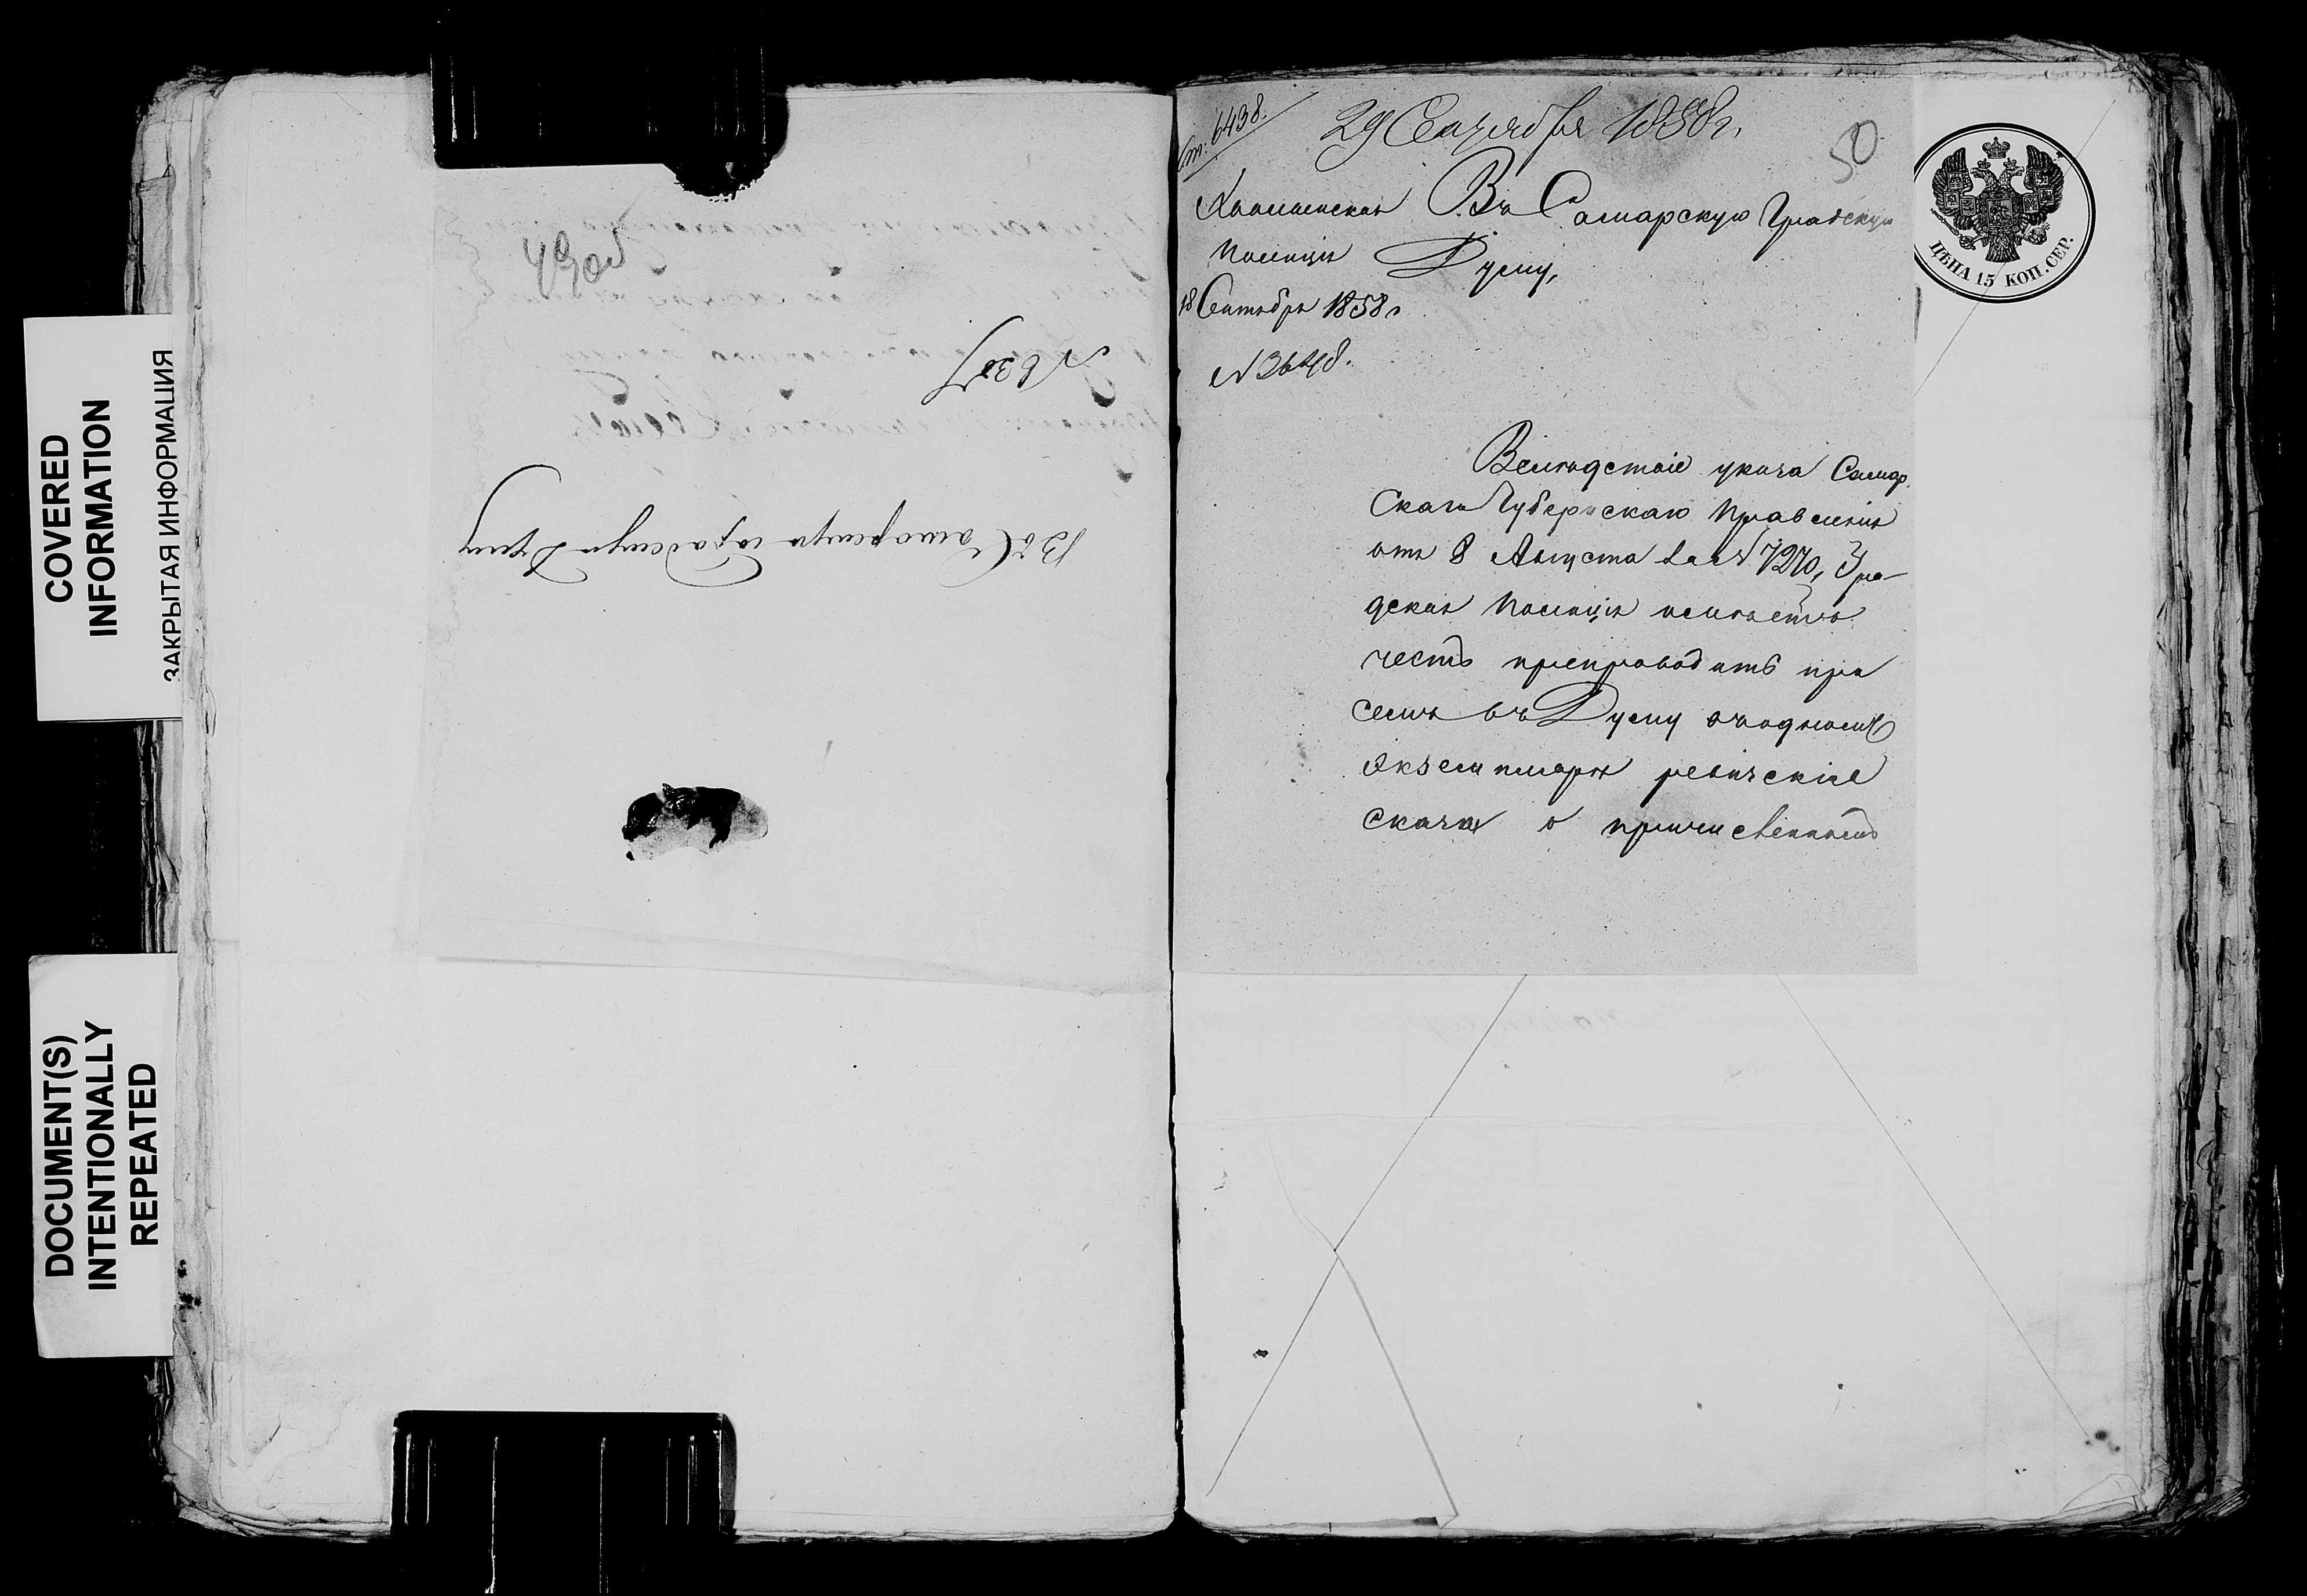 COVERED
INFORMATION
ЗАКРЫТАЯ ИНФОРМАЦИЯ
DOCUMENT(S)
INTENTIONALLY
REPEATED
49 об
Въ Самарскую Градскую Думу
6438.
29 Сентября 1858 г.
50
Въ Самарскую Градскую
Думу,
Полиція
18 Сентября 1858 г
N 3648.
ЦѢНА 15 КОП. СЕР.
Вслѣдствіе указа Самар
скаго Губернскаго Правленія
отъ 8 Августа за N 7270, Гра-
дская Полиція имѣетъ
честь препроводить при
семъ въ Думу въ одномъ
экземпляръ ревизскіе
сказки о